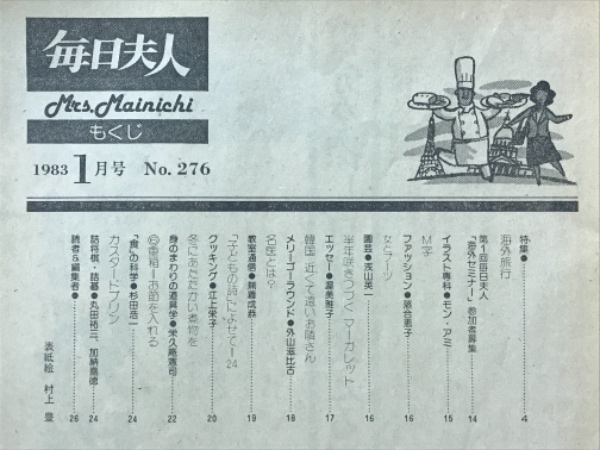 毎日夫人
Mrs. Mainichi
もくじ
1983 1月号 No. 276
特集●……4
海外旅行
第1回毎日夫人
「海外セミナー」参加者募集……14
イラスト専科●モン・アミ……15
M字
ファッション●落合恵子……16
女とブーツ
園芸●浅山英一……16
半年咲きつづくマーガレット
エッセー●渥美雅子……17
韓国 近くて遠いお隣さん
メリーゴーラウンド●外山滋比古……18
名医とは?
教室通信●無着成恭……19
「子どもの詩」によせて―24
クッキング●江上栄子……20
冬にあたたかい煮物を
身のまわりの道具学●栄久庵憲司……22
お節を入れる
「食」の科学●杉田浩一……24
カスタードプリン
詰将棋・詰碁●丸田祐三、加納嘉徳……24
読者&編集者●……26
表紙絵 村上 豊